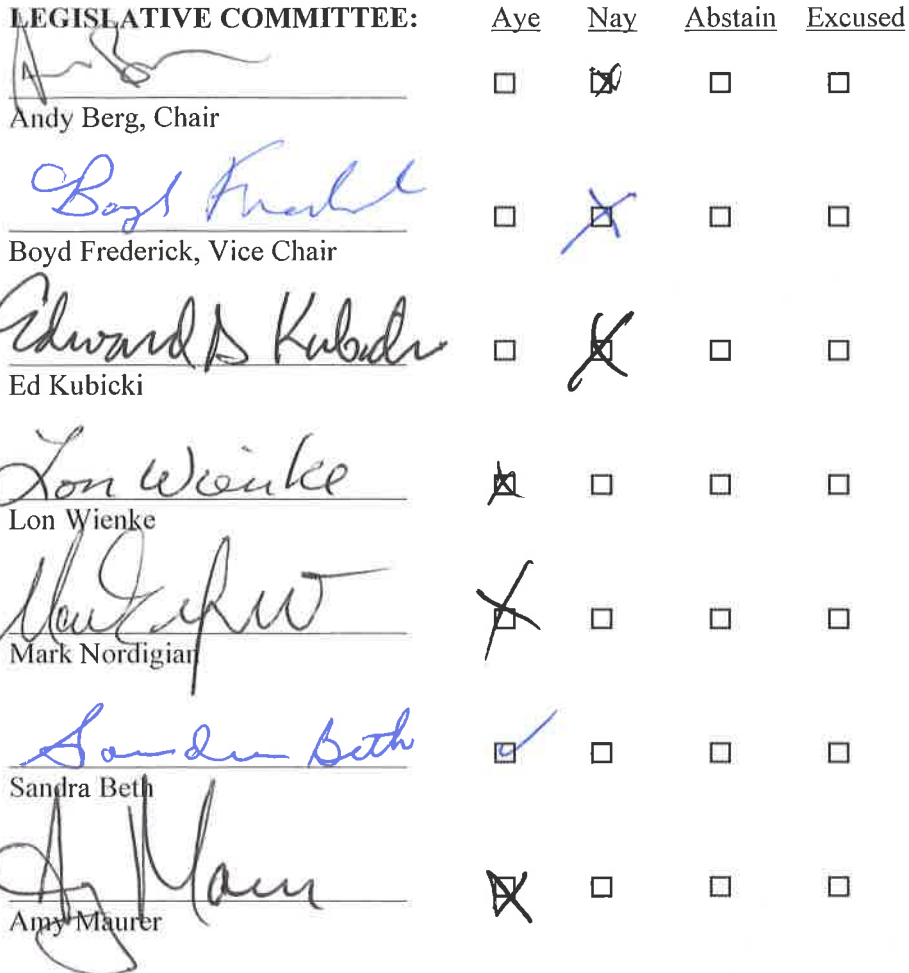 LEGISLATIVE COMMITTEE: Aye Nay Abstain Excused
☐ ☒ ☐ ☐
Andy Berg, Chair
Boyd Frederick
☐ ☒ ☐ ☐
Boyd Frederick, Vice Chair
Edward D Kubicki
☐ ☒ ☐ ☐
Ed Kubicki
Lon Wienke
☒ ☐ ☐ ☐
Lon Wienke
☒ ☐ ☐ ☐
Mark Nordigian
Sandra Beth
☑ ☐ ☐ ☐
Sandra Beth
Amy Maurer
☒ ☐ ☐ ☐
Amy Maurer